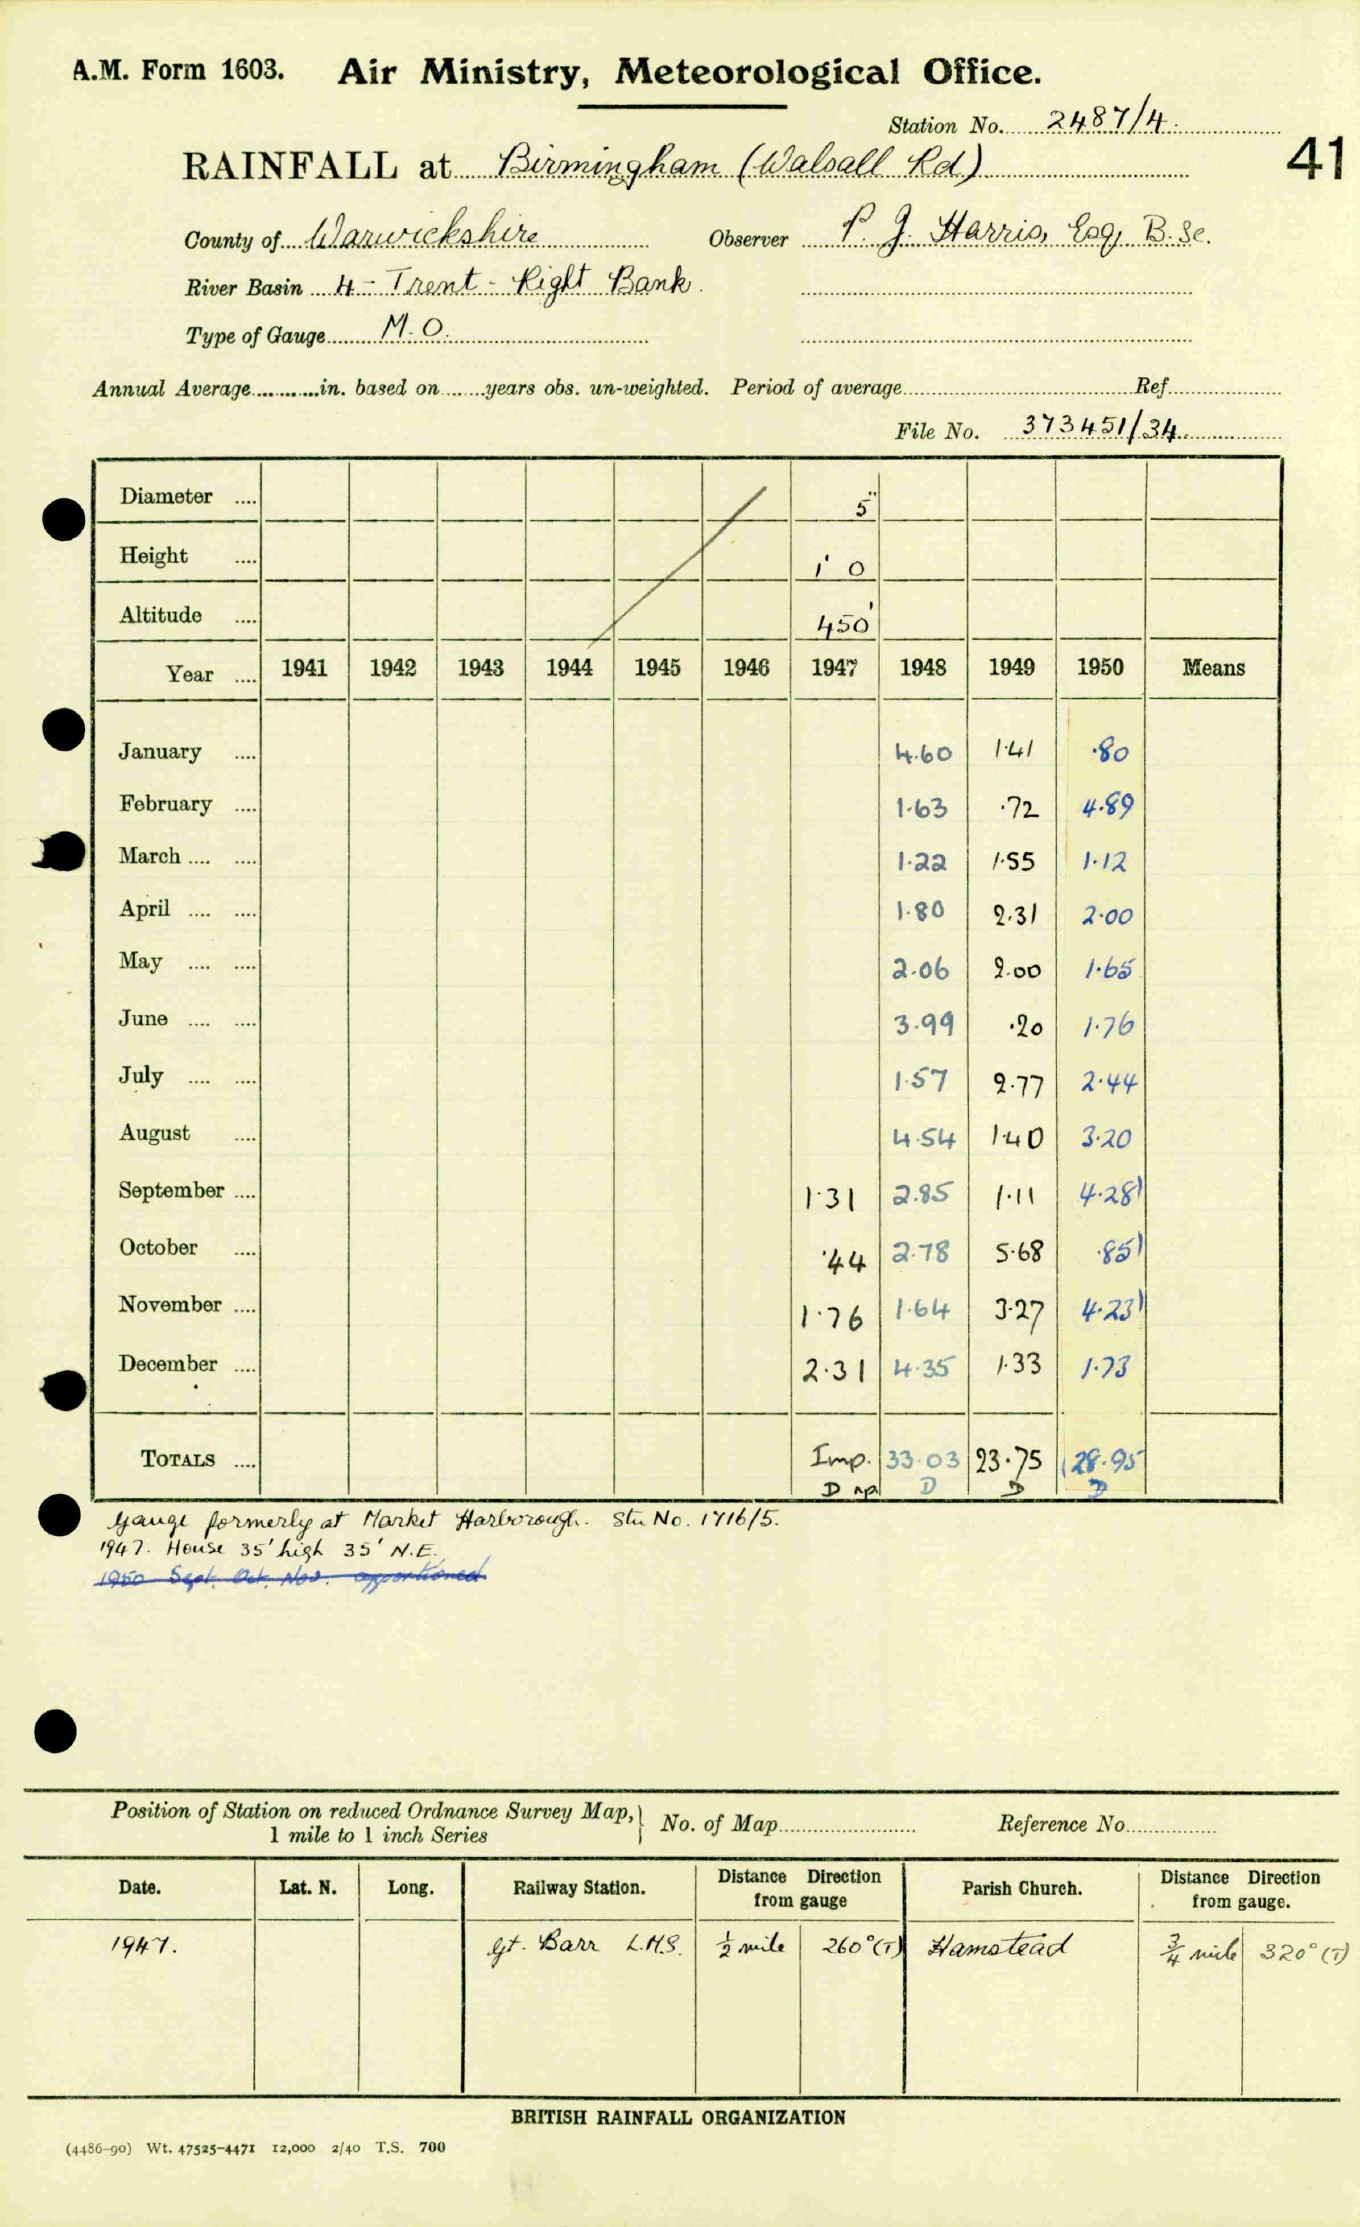 A.M. Form 1603. Air Ministry, Meteorological Office.
Station No. 2487/4.
41
RAINFALL at Birmingham (Walsall Rd)
County of Warwickshire Observer P. J. Harris, Esq, B.Sc.
River Basin 4 - Trent - Right Bank.
Type of Gauge M.O.
Annual Average in. based on years obs. un-weighted. Period of average Ref
File No. 373451/34
Diameter 5"
Height 1' 0
Altitude 450'
Year 1941 1942 1943 1944 1945 1946 1947 1948 1949 1950 Means
January 4.60 1.41 .80
February 1.63 .72 4.89
March 1.22 1.55 1.12
April 1.80 2.31 2.00
May 2.06 2.00 1.65
June 3.99 .20 1.76
July 1.57 2.77 2.44
August 4.54 1.40 3.20
September 1.31 2.85 1.11 4.28)
October .44 2.78 5.68 .85)
November 1.76 1.64 3.27 4.23)
December 2.31 4.35 1.33 1.73
TOTALS Imp. 33.03 23.75 28.95
D np. D D D
Gauge formerly at Market Harborough. Stn No. 1716/5.
1947. House 35' high 35' N.E.
1950 Sept. Oct. Nov. apportioned
Position of Station on reduced Ordnance Survey Map, } No. of Map Reference No
1 mile to 1 inch Series
Date. Lat. N. Long. Railway Station. Distance Direction from gauge Parish Church. Distance Direction from gauge.
1947. Gt. Barr L.M.S. ½ mile 260° (T) Hamstead ¾ mile 320° (T)
BRITISH RAINFALL ORGANIZATION
(4486-90) Wt. 47525-4471 12,000 2/40 T.S. 700